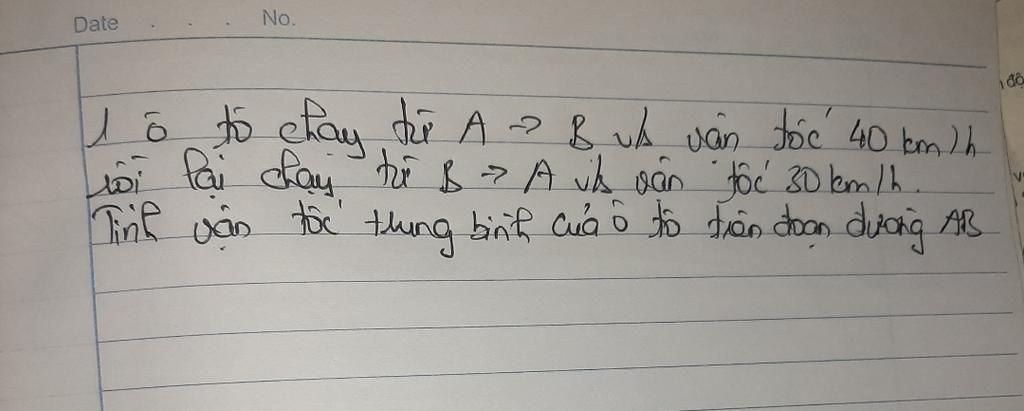 Date . . . No.
1 ô tô chạy từ A → B với vận tốc 40 km/h
rồi lại chạy từ B → A với vận tốc 30 km/h.
Tính vận tốc trung bình của ô tô trên đoạn đường AB